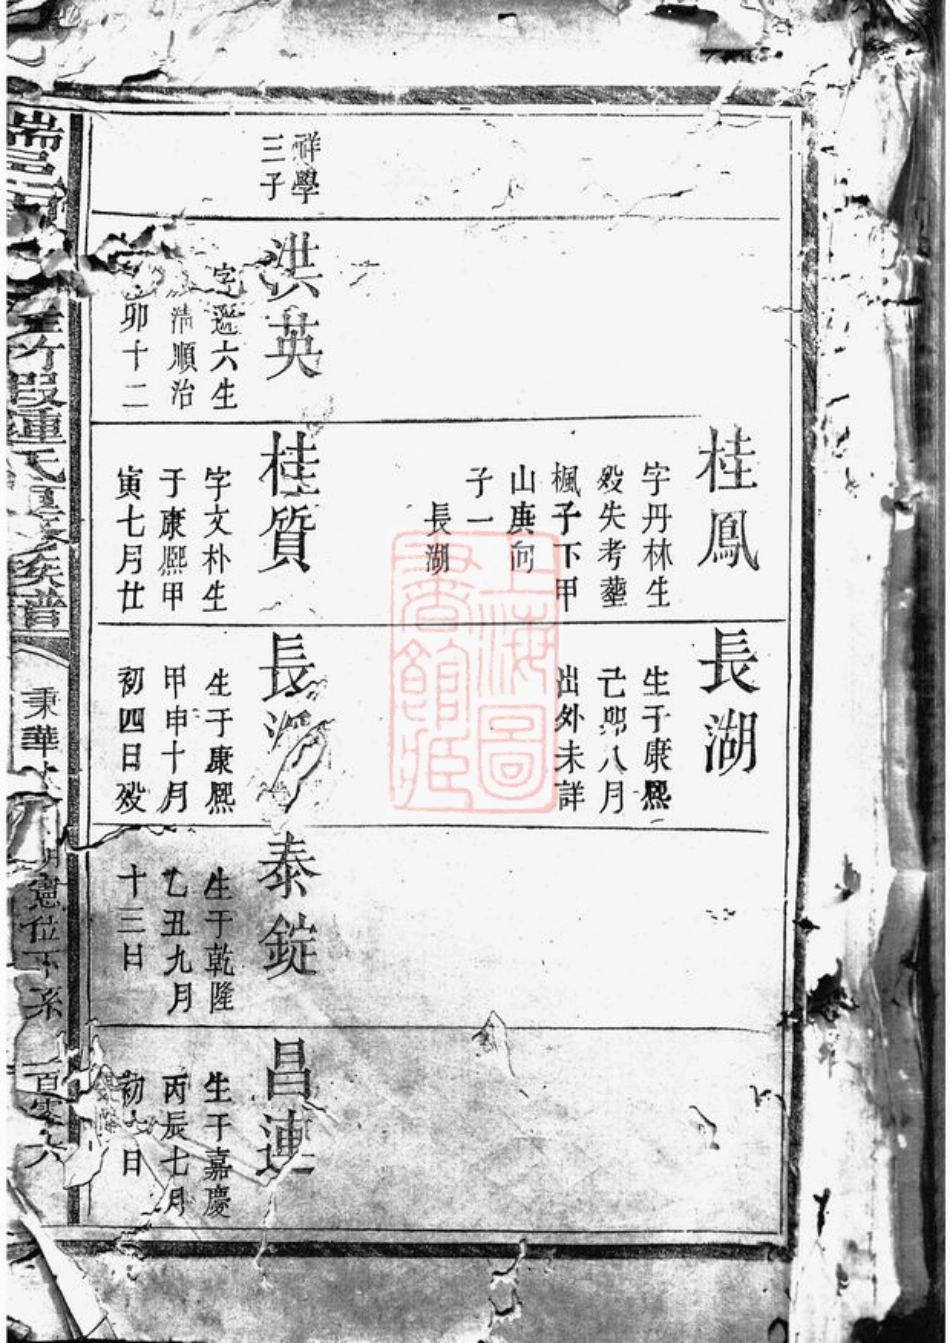 祥學
三子
洪英
字遜六生
清順治
卯十二
桂鳳
字丹林生
殁失考塟
楓子下甲
山庚向
子一
長湖
桂質
字文朴生
于康熙甲
寅七月廿
長湖
生于康熙
己卯八月
出外未詳
長
生于康熙
甲申十月
初四日殁
泰錠
生于乾隆
乙丑九月
十三日
昌連
生于嘉慶
丙辰七月
初六日
鍾氏
族譜
秉華
憲位下系
一百零六
上海圖
書館藏